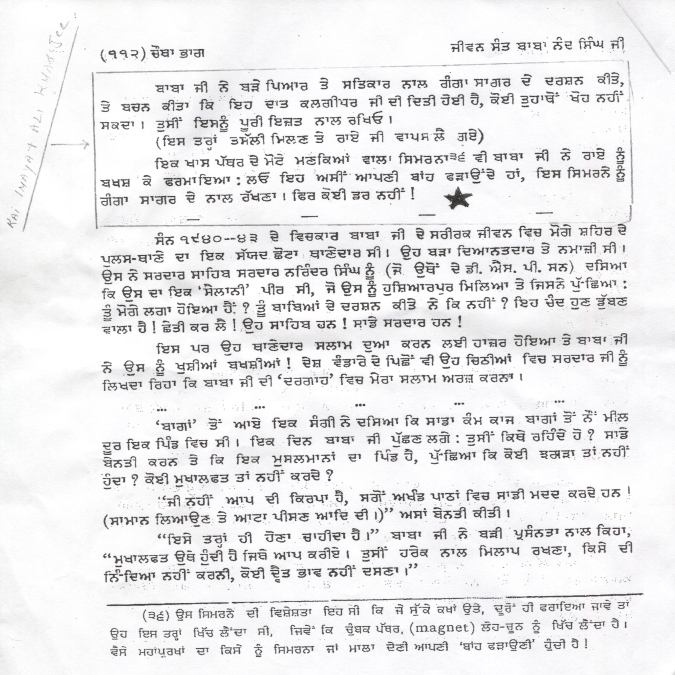 RAI INAYAT ALI KHAN Jee.
(੧੧੨) ਚੌਥਾ ਭਾਗ
ਜੀਵਨ ਸੰਤ ਬਾਬਾ ਨੰਦ ਸਿੰਘ ਜੀ
ਬਾਬਾ ਜੀ ਨੇ ਬੜੇ ਪਿਆਰ ਤੇ ਸਤਿਕਾਰ ਨਾਲ ਗੰਗਾ ਸਾਗਰ ਦੇ ਦਰਸ਼ਨ ਕੀਤੇ,
ਤੇ ਬਚਨ ਕੀਤਾ ਕਿ ਇਹ ਦਾਤ ਕਲਗੀਧਰ ਜੀ ਦੀ ਦਿਤੀ ਹੋਈ ਹੈ, ਕੋਈ ਤੁਹਾਥੋਂ ਖੋਹ ਨਹੀਂ
ਸਕਦਾ। ਤੁਸੀਂ ਇਸਨੂੰ ਪੂਰੀ ਇਜ਼ਤ ਨਾਲ ਰਖਿਓ।
(ਇਸ ਤਰ੍ਹਾਂ ਤਸੱਲੀ ਮਿਲਣ ਤੇ ਰਾਏ ਜੀ ਵਾਪਸ ਲੈ ਗਏ)
ਇਕ ਖਾਸ ਪੱਥਰ ਦੇ ਮੋਟੇ ਮਣਕਿਆਂ ਵਾਲਾ ਸਿਮਰਨਾ੩੬ ਵੀ ਬਾਬਾ ਜੀ ਨੇ ਰਾਏ ਨੂੰ
ਬਖਸ਼ ਕੇ ਫਰਮਾਇਆ : ਲਓ ਇਹ ਅਸੀਂ ਆਪਣੀ ਬਾਂਹ ਫੜਾਉਂਦੇ ਹਾਂ, ਇਸ ਸਿਮਰਨੇ ਨੂੰ
ਗੰਗਾ ਸਾਗਰ ਦੇ ਨਾਲ ਰੱਖਣਾ। ਫਿਰ ਕੋਈ ਡਰ ਨਹੀਂ !
ਸੰਨ ੧੯੪੦—੪੩ ਦੇ ਵਿਚਕਾਰ ਬਾਬਾ ਜੀ ਦੇ ਸਰੀਰਕ ਜੀਵਨ ਵਿਚ ਮੋਗੇ ਸ਼ਹਿਰ ਦੇ
ਪੁਲਸ-ਥਾਣੇ ਦਾ ਇਕ ਸੱਯਦ ਛੋਟਾ ਥਾਣੇਦਾਰ ਸੀ। ਉਹ ਬੜਾ ਦਿਆਨਤਦਾਰ ਤੇ ਨਮਾਜ਼ੀ ਸੀ।
ਉਸ ਨੇ ਸਰਦਾਰ ਸਾਹਿਬ ਸਰਦਾਰ ਨਰਿੰਦਰ ਸਿੰਘ ਨੂੰ (ਜੋ ਉਥੋਂ ਦੇ ਡੀ. ਐਸ. ਪੀ. ਸਨ) ਦਸਿਆ
ਕਿ ਉਸ ਦਾ ਇਕ ‘ਸੈਲਾਨੀ’ ਪੀਰ ਸੀ, ਜੋ ਉਸ ਨੂੰ ਹੁਸ਼ਿਆਰਪੁਰ ਮਿਲਿਆ ਤੇ ਜਿਸਨੇ ਪੁੱਛਿਆ :
ਤੂੰ ਮੋਗੇ ਲਗਾ ਹੋਇਆ ਹੈਂ ? ਤੂੰ ਬਾਬਿਆਂ ਦੇ ਦਰਸ਼ਨ ਕੀਤੇ ਨੇ ਕਿ ਨਹੀਂ ? ਇਹ ਚੰਦ ਹੁਣ ਡੁੱਬਣ
ਵਾਲਾ ਹੈ ! ਛੇਤੀ ਕਰ ਲੈ ! ਉਹ ਸਾਹਿਬ ਹਨ ! ਸਾਡੇ ਸਰਦਾਰ ਹਨ !
ਇਸ ਪਰ ਉਹ ਥਾਣੇਦਾਰ ਸਲਾਮ ਦੁਆ ਕਰਨ ਲਈ ਹਾਜ਼ਰ ਹੋਇਆ ਤੇ ਬਾਬਾ ਜੀ
ਨੇ ਉਸ ਨੂੰ ਖੁਸ਼ੀਆਂ ਬਖਸ਼ੀਆਂ ! ਦੇਸ਼ ਵੰਡਾਰੇ ਦੇ ਪਿਛੋਂ ਵੀ ਉਹ ਚਿਠੀਆਂ ਵਿਚ ਸਰਦਾਰ ਜੀ ਨੂੰ
ਲਿਖਦਾ ਰਿਹਾ ਕਿ ਬਾਬਾ ਜੀ ਦੀ ‘ਦਰਗਾਹ’ ਵਿਚ ਮੇਰਾ ਸਲਾਮ ਅਰਜ਼ ਕਰਨਾ।
... ... ... ... ...
‘ਬਾਗਾਂ’ ਤੋਂ ਆਏ ਇਕ ਸੰਗੀ ਨੇ ਦਸਿਆ ਕਿ ਸਾਡਾ ਕੰਮ ਕਾਜ ਬਾਗਾਂ ਤੋਂ ਨੌਂ ਮੀਲ
ਦੂਰ ਇਕ ਪਿੰਡ ਵਿਚ ਸੀ। ਇਕ ਦਿਨ ਬਾਬਾ ਜੀ ਪੁੱਛਣ ਲਗੇ : ਤੁਸੀਂ ਕਿਥੇ ਰਹਿੰਦੇ ਹੋ ? ਸਾਡੇ
ਬੇਨਤੀ ਕਰਨ ਤੇ ਕਿ ਇਕ ਮੁਸਲਮਾਨਾਂ ਦਾ ਪਿੰਡ ਹੈ, ਪੁੱਛਿਆ ਕਿ ਕੋਈ ਝਗੜਾ ਤਾਂ ਨਹੀਂ
ਹੁੰਦਾ ? ਕੋਈ ਮੁਖਾਲਫਤ ਤਾਂ ਨਹੀਂ ਕਰਦੇ ?
“ਜੀ ਨਹੀਂ ਆਪ ਦੀ ਕਿਰਪਾ ਹੈ, ਸਗੋਂ ਅਖੰਡ ਪਾਠਾਂ ਵਿਚ ਸਾਡੀ ਮਦਦ ਕਰਦੇ ਹਨ !
(ਸਾਮਾਨ ਲਿਆਉਣ ਤੇ ਆਟਾ ਪੀਸਣ ਆਦਿ ਦੀ।)” ਅਸਾਂ ਬੇਨਤੀ ਕੀਤੀ।
“ਇਸੇ ਤਰ੍ਹਾਂ ਹੀ ਹੋਣਾ ਚਾਹੀਦਾ ਹੈ।” ਬਾਬਾ ਜੀ ਨੇ ਬੜੀ ਪ੍ਰਸੰਨਤਾ ਨਾਲ ਕਿਹਾ,
“ਮੁਖਾਲਫਤ ਉਥੇ ਹੁੰਦੀ ਹੈ ਜਿਥੇ ਆਪ ਕਰੀਏ। ਤੁਸੀਂ ਹਰੇਕ ਨਾਲ ਮਿਲਾਪ ਰਖਣਾ, ਕਿਸੇ ਦੀ
ਨਿੰਦਿਆ ਨਹੀਂ ਕਰਨੀ, ਕੋਈ ਦ੍ਵੈਤ ਭਾਵ ਨਹੀਂ ਦਸਣਾ।”
(੩੬) ਉਸ ਸਿਮਰਨੇ ਦੀ ਵਿਸ਼ੇਸ਼ਤਾ ਇਹ ਸੀ ਕਿ ਜੇ ਸੁੱਕੇ ਕਖਾਂ ਉਤੇ, ਦੂਰੋਂ ਹੀ ਫਰਾਇਆ ਜਾਵੇ ਤਾਂ
ਉਹ ਇਸ ਤਰ੍ਹਾਂ ਖਿੱਚ ਲੈਂਦਾ ਸੀ, ਜਿਵੇਂ ਕਿ ਚੁੰਬਕ ਪੱਥਰ, (magnet) ਲੋਹ-ਚੂਨ ਨੂੰ ਖਿੱਚ ਲੈਂਦਾ ਹੈ।
ਵੈਸੇ ਮਹਾਂਪੁਰਖਾਂ ਦਾ ਕਿਸੇ ਨੂੰ ਸਿਮਰਨਾ ਜਾਂ ਮਾਲਾ ਦੇਣੀ ਆਪਣੀ ‘ਬਾਂਹ ਫੜਾਉਣੀ’ ਹੁੰਦੀ ਹੈ !